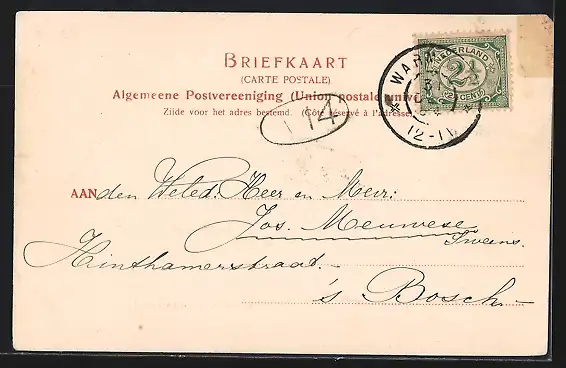 BRIEFKAART
(CARTE POSTALE)
Algemeene Postvereeniging (Union postale univ
Zijde voor het adres bestemd. (Côté réservé à l'adresse.
NEDERLAND
2½
CENT
WAR
12-1V
14
AAN den Weled. Heer en Mevr:
Jos. Meuwese
Sweens.
Hinthamerstraat. -
's Bosch -